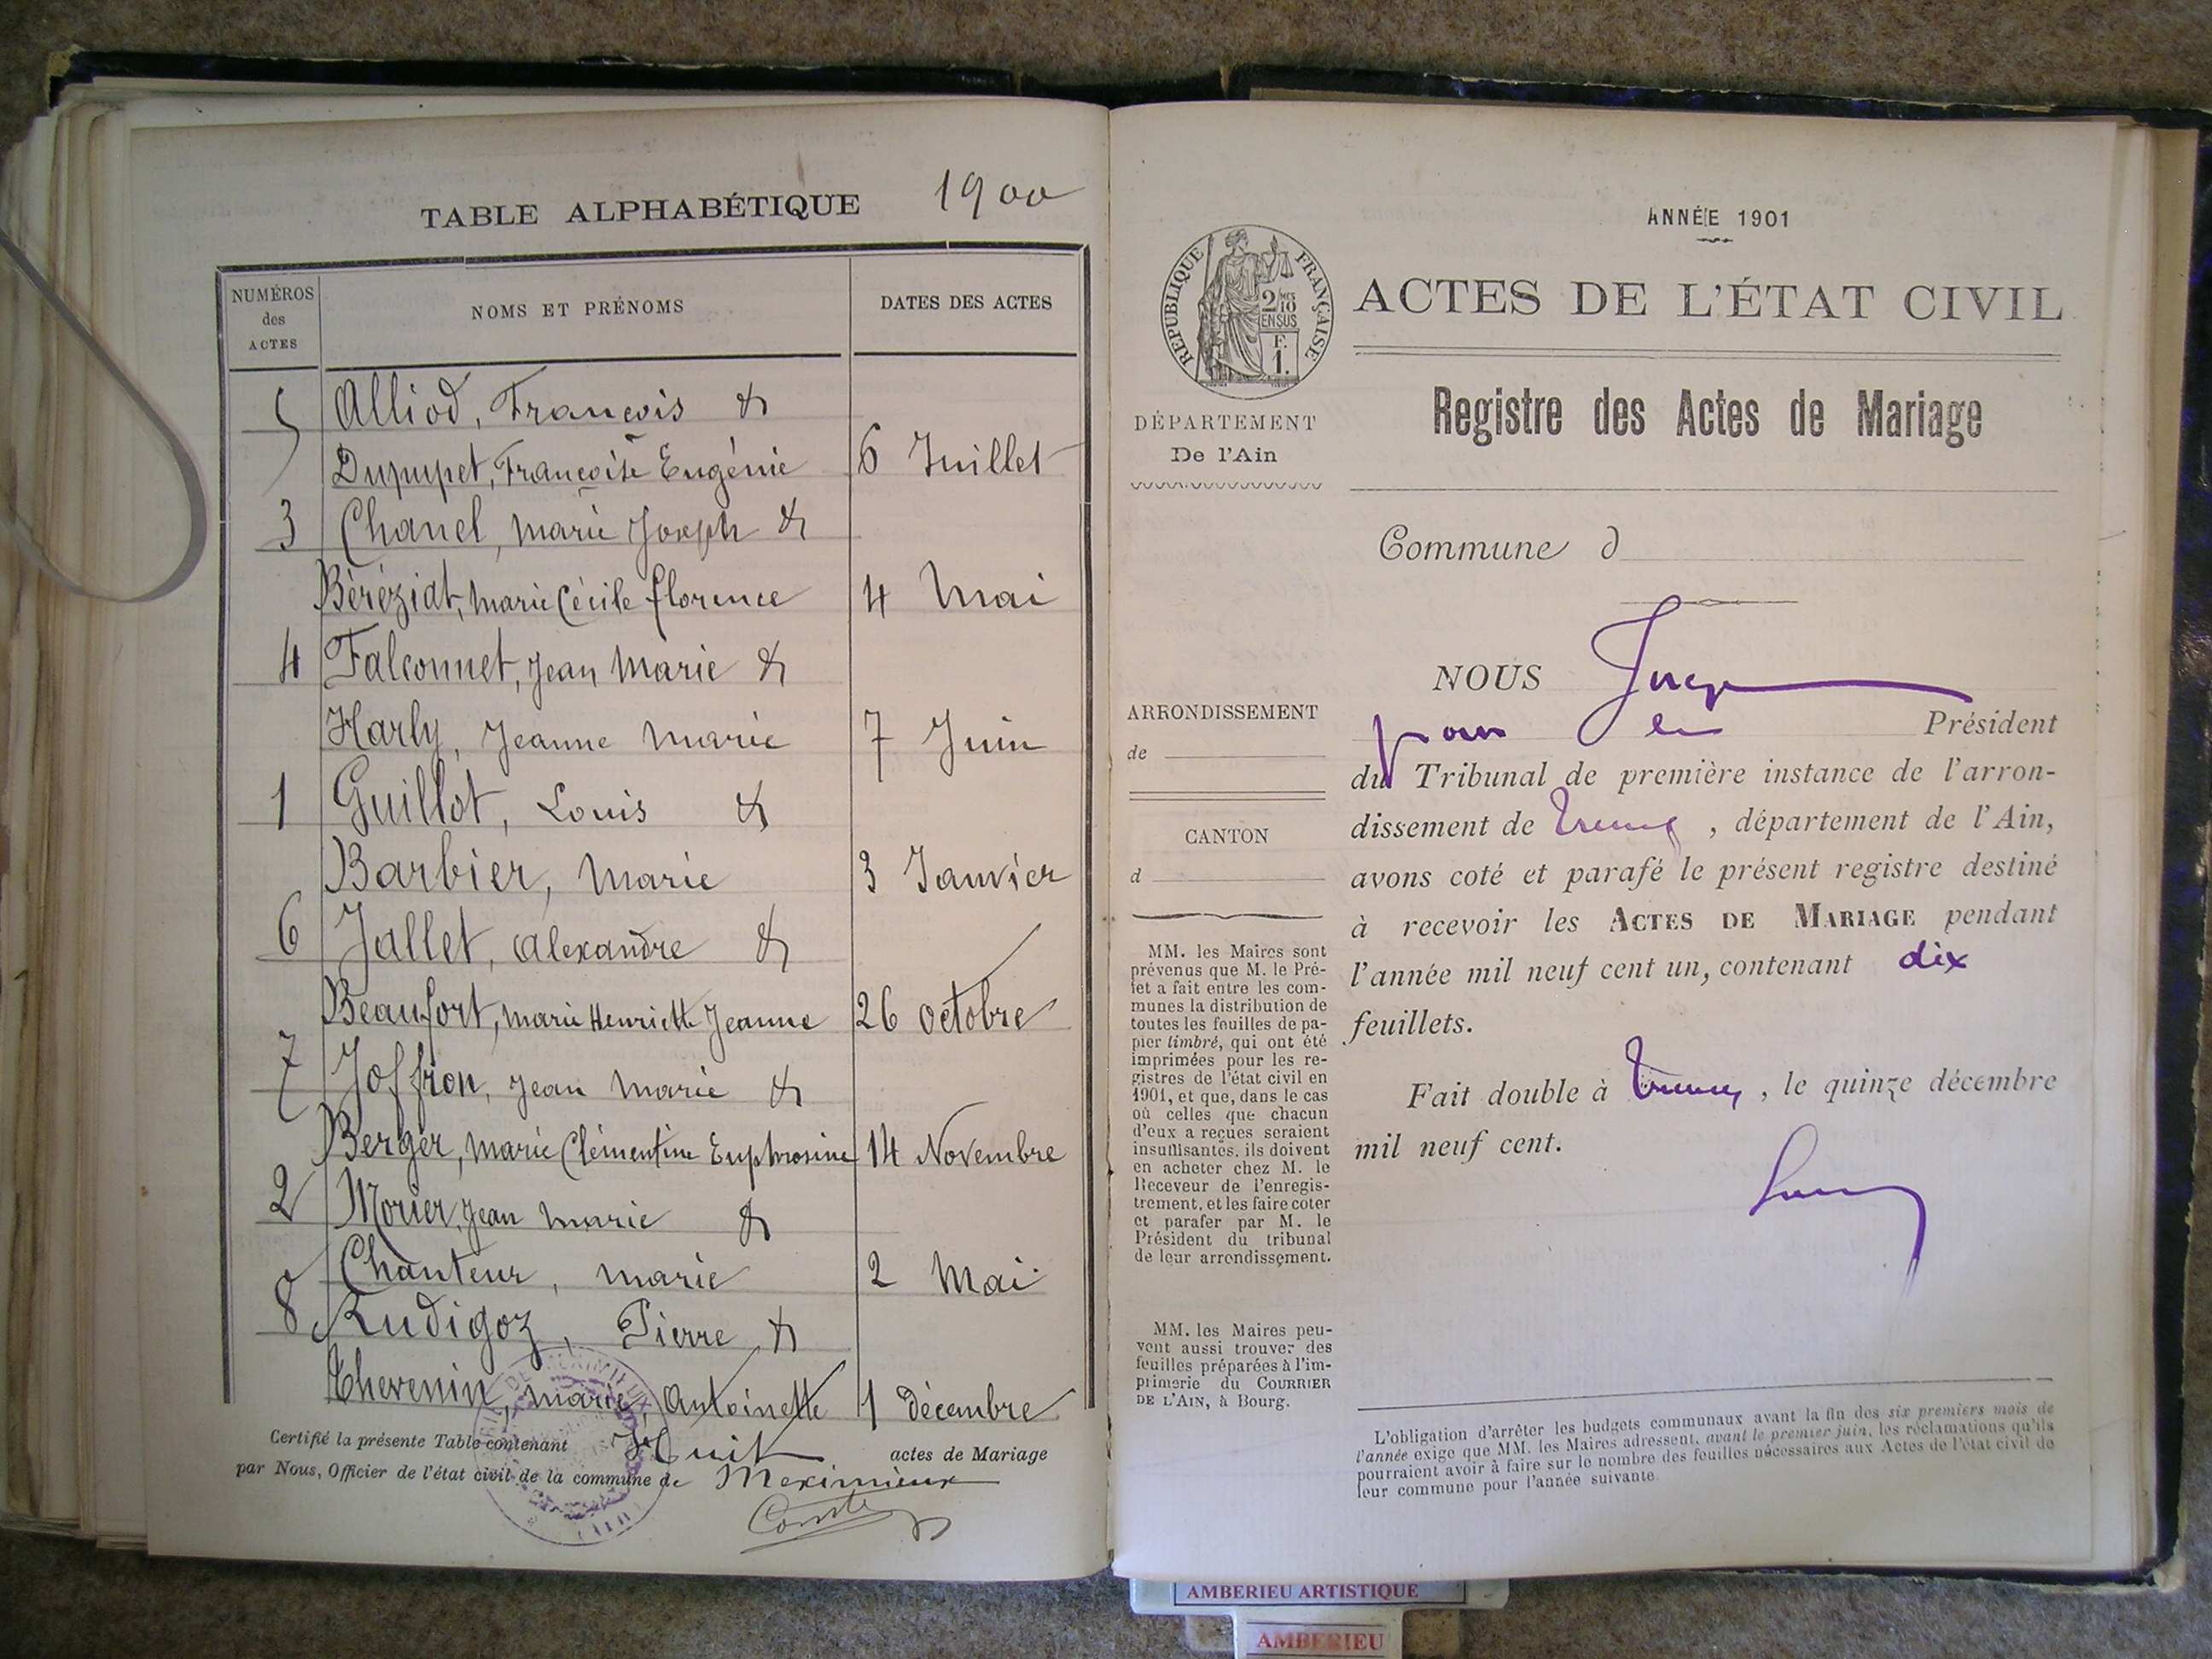 TABLE ALPHABÉTIQUE 1900
NUMÉROS des ACTES
NOMS ET PRÉNOMS
DATES DES ACTES
5 Alliod, François &
Dupupet, Françoise Eugénie 6 Juillet
3 Chanel, Marie Joseph &
Béréziat, Marie Cécile florence 4 Mai
4 Falconnet, Jean Marie &
Harly, Jeanne Marie 7 Juin
1 Guillot, Louis &
Barbier, Marie 3 Janvier
6 Jallet, Alexandre &
Beaufort, Marie Henriette Jeanne 26 Octobre
7 Joffron, Jean Marie &
Berger, Marie Clémentine Euphrosine 14 Novembre
2 Morier, Jean Marie &
Chanteur, Marie 2 Mai
8 Rudigoz, Pierre &
Thevenin, Marie, Antoinette 1 décembre
Certifié la présente Table contenant Huit actes de Mariage
par Nous, Officier de l'état civil de la commune de Meximieux
ANNÉE 1901
RÉPUBLIQUE FRANÇAISE
2/10 EN SUS
F. 1.
ACTES DE L'ÉTAT CIVIL
Registre des Actes de Mariage
DÉPARTEMENT
De l'Ain
Commune d
ARRONDISSEMENT
de
CANTON
d
MM. les Maires sont
prévenus que M. le Pré-
fet a fait entre les com-
munes la distribution de
toutes les feuilles de pa-
pier timbré, qui ont été
imprimées pour les re-
gistres de l'état civil en
1901, et que, dans le cas
où celles que chacun
d'eux a reçues seraient
insuffisantes, ils doivent
en acheter chez M. le
Receveur de l'enregis-
trement, et les faire coter
et parafer par M. le
Président du tribunal
de leur arrondissement.
MM. les Maires peu-
vent aussi trouver des
feuilles préparées à l'im-
primerie du COURRIER
DE L'AIN, à Bourg.
NOUS Juge
pour le Président
du Tribunal de première instance de l'arron-
dissement de , département de l'Ain,
avons coté et parafé le présent registre destiné
à recevoir les ACTES DE MARIAGE pendant
l'année mil neuf cent un, contenant dix
feuillets.
Fait double à , le quinze décembre
mil neuf cent.
L'obligation d'arrêter les budgets communaux avant la fin des six premiers mois de
l'année exige que MM. les Maires adressent, avant le premier juin, les réclamations qu'ils
pourraient avoir à faire sur le nombre des feuilles nécessaires aux Actes de l'état civil de
leur commune pour l'année suivante.
AMBERIEU ARTISTIQUE
AMBERIEU